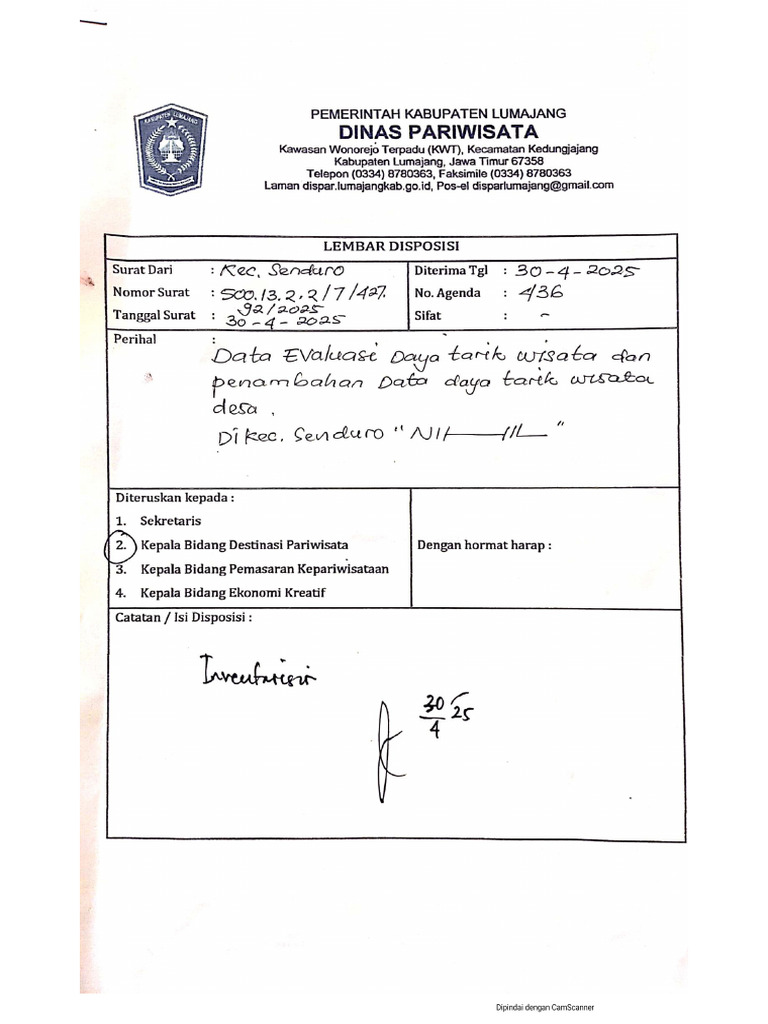 KABUPATEN LUMAJANG
PEMERINTAH KABUPATEN LUMAJANG
DINAS PARIWISATA
Kawasan Wonorejo Terpadu (KWT), Kecamatan Kedungjajang
Kabupaten Lumajang, Jawa Timur 67358
Telepon (0334) 8780363, Faksimile (0334) 8780363
Laman dispar.lumajangkab.go.id, Pos-el disparlumajang@gmail.com
LEMBAR DISPOSISI
Surat Dari : Kec. Senduro
Diterima Tgl : 30-4-2025
Nomor Surat : 500.13.2.2/7/427.
No. Agenda : 436
92/2025
Tanggal Surat : 30-4-2025
Sifat : -
Perihal :
Data Evaluasi Daya tarik wisata dan
penambahan Data daya tarik wisata
desa.
Di kec. Senduro "NIHIL"
Diteruskan kepada :
1. Sekretaris
2. Kepala Bidang Destinasi Pariwisata
3. Kepala Bidang Pemasaran Kepariwisataan
4. Kepala Bidang Ekonomi Kreatif
Dengan hormat harap :
Catatan / Isi Disposisi :
Inventarisir
30/4 25
Dipindai dengan CamScanner